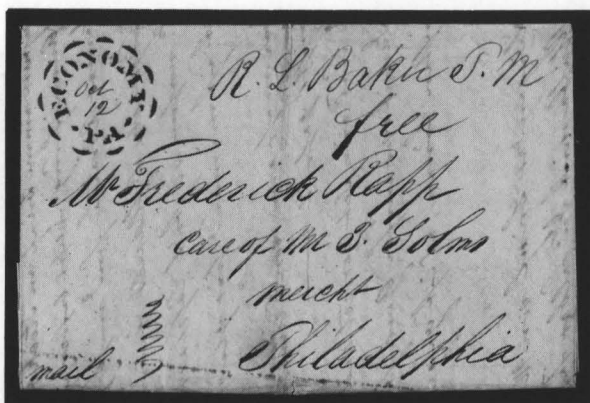 ECONOMY PA
Oct
12
R. L. Baker P. M
free
Mr Frederick Rapp
care of M S. Solms
mercht
Philadelphia
mail